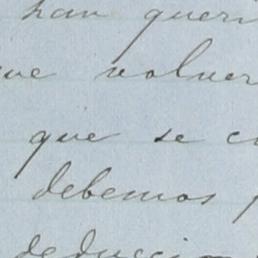 han queri
ue volver
que se c
debemos p
deduccion